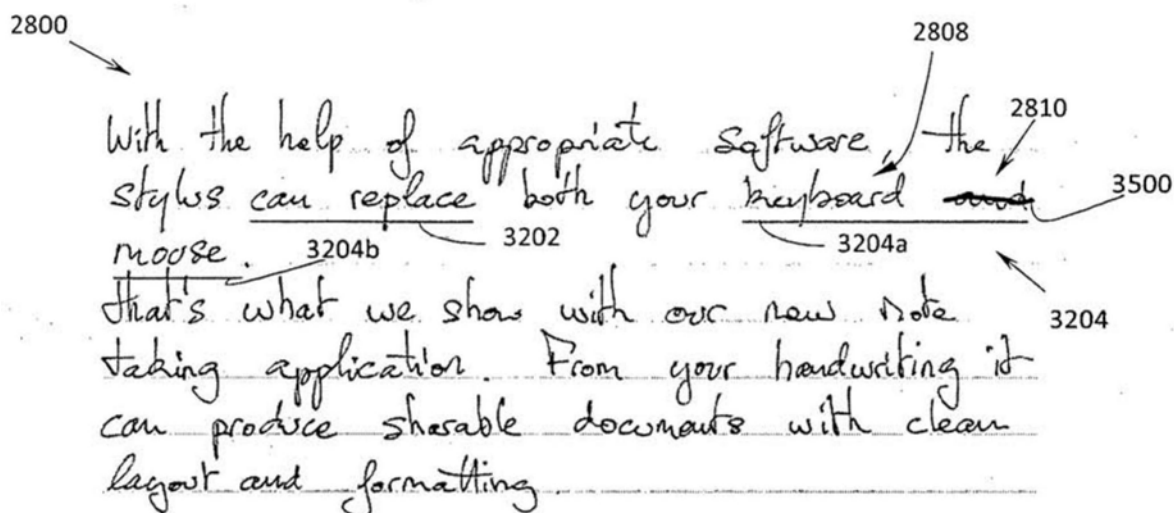 2800
2808
With the help of appropriate software, the
2810
stylus can replace both your keyboard and
3500
3202
3204a
mouse.
3204b
that's what we show with our new note
3204
taking application. From your handwriting it
can produce sharable documents with clean
layout and formatting.